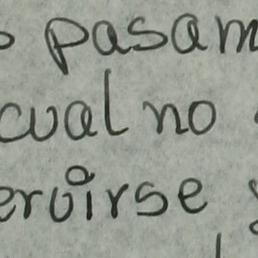 pasam
cual no
ervirse